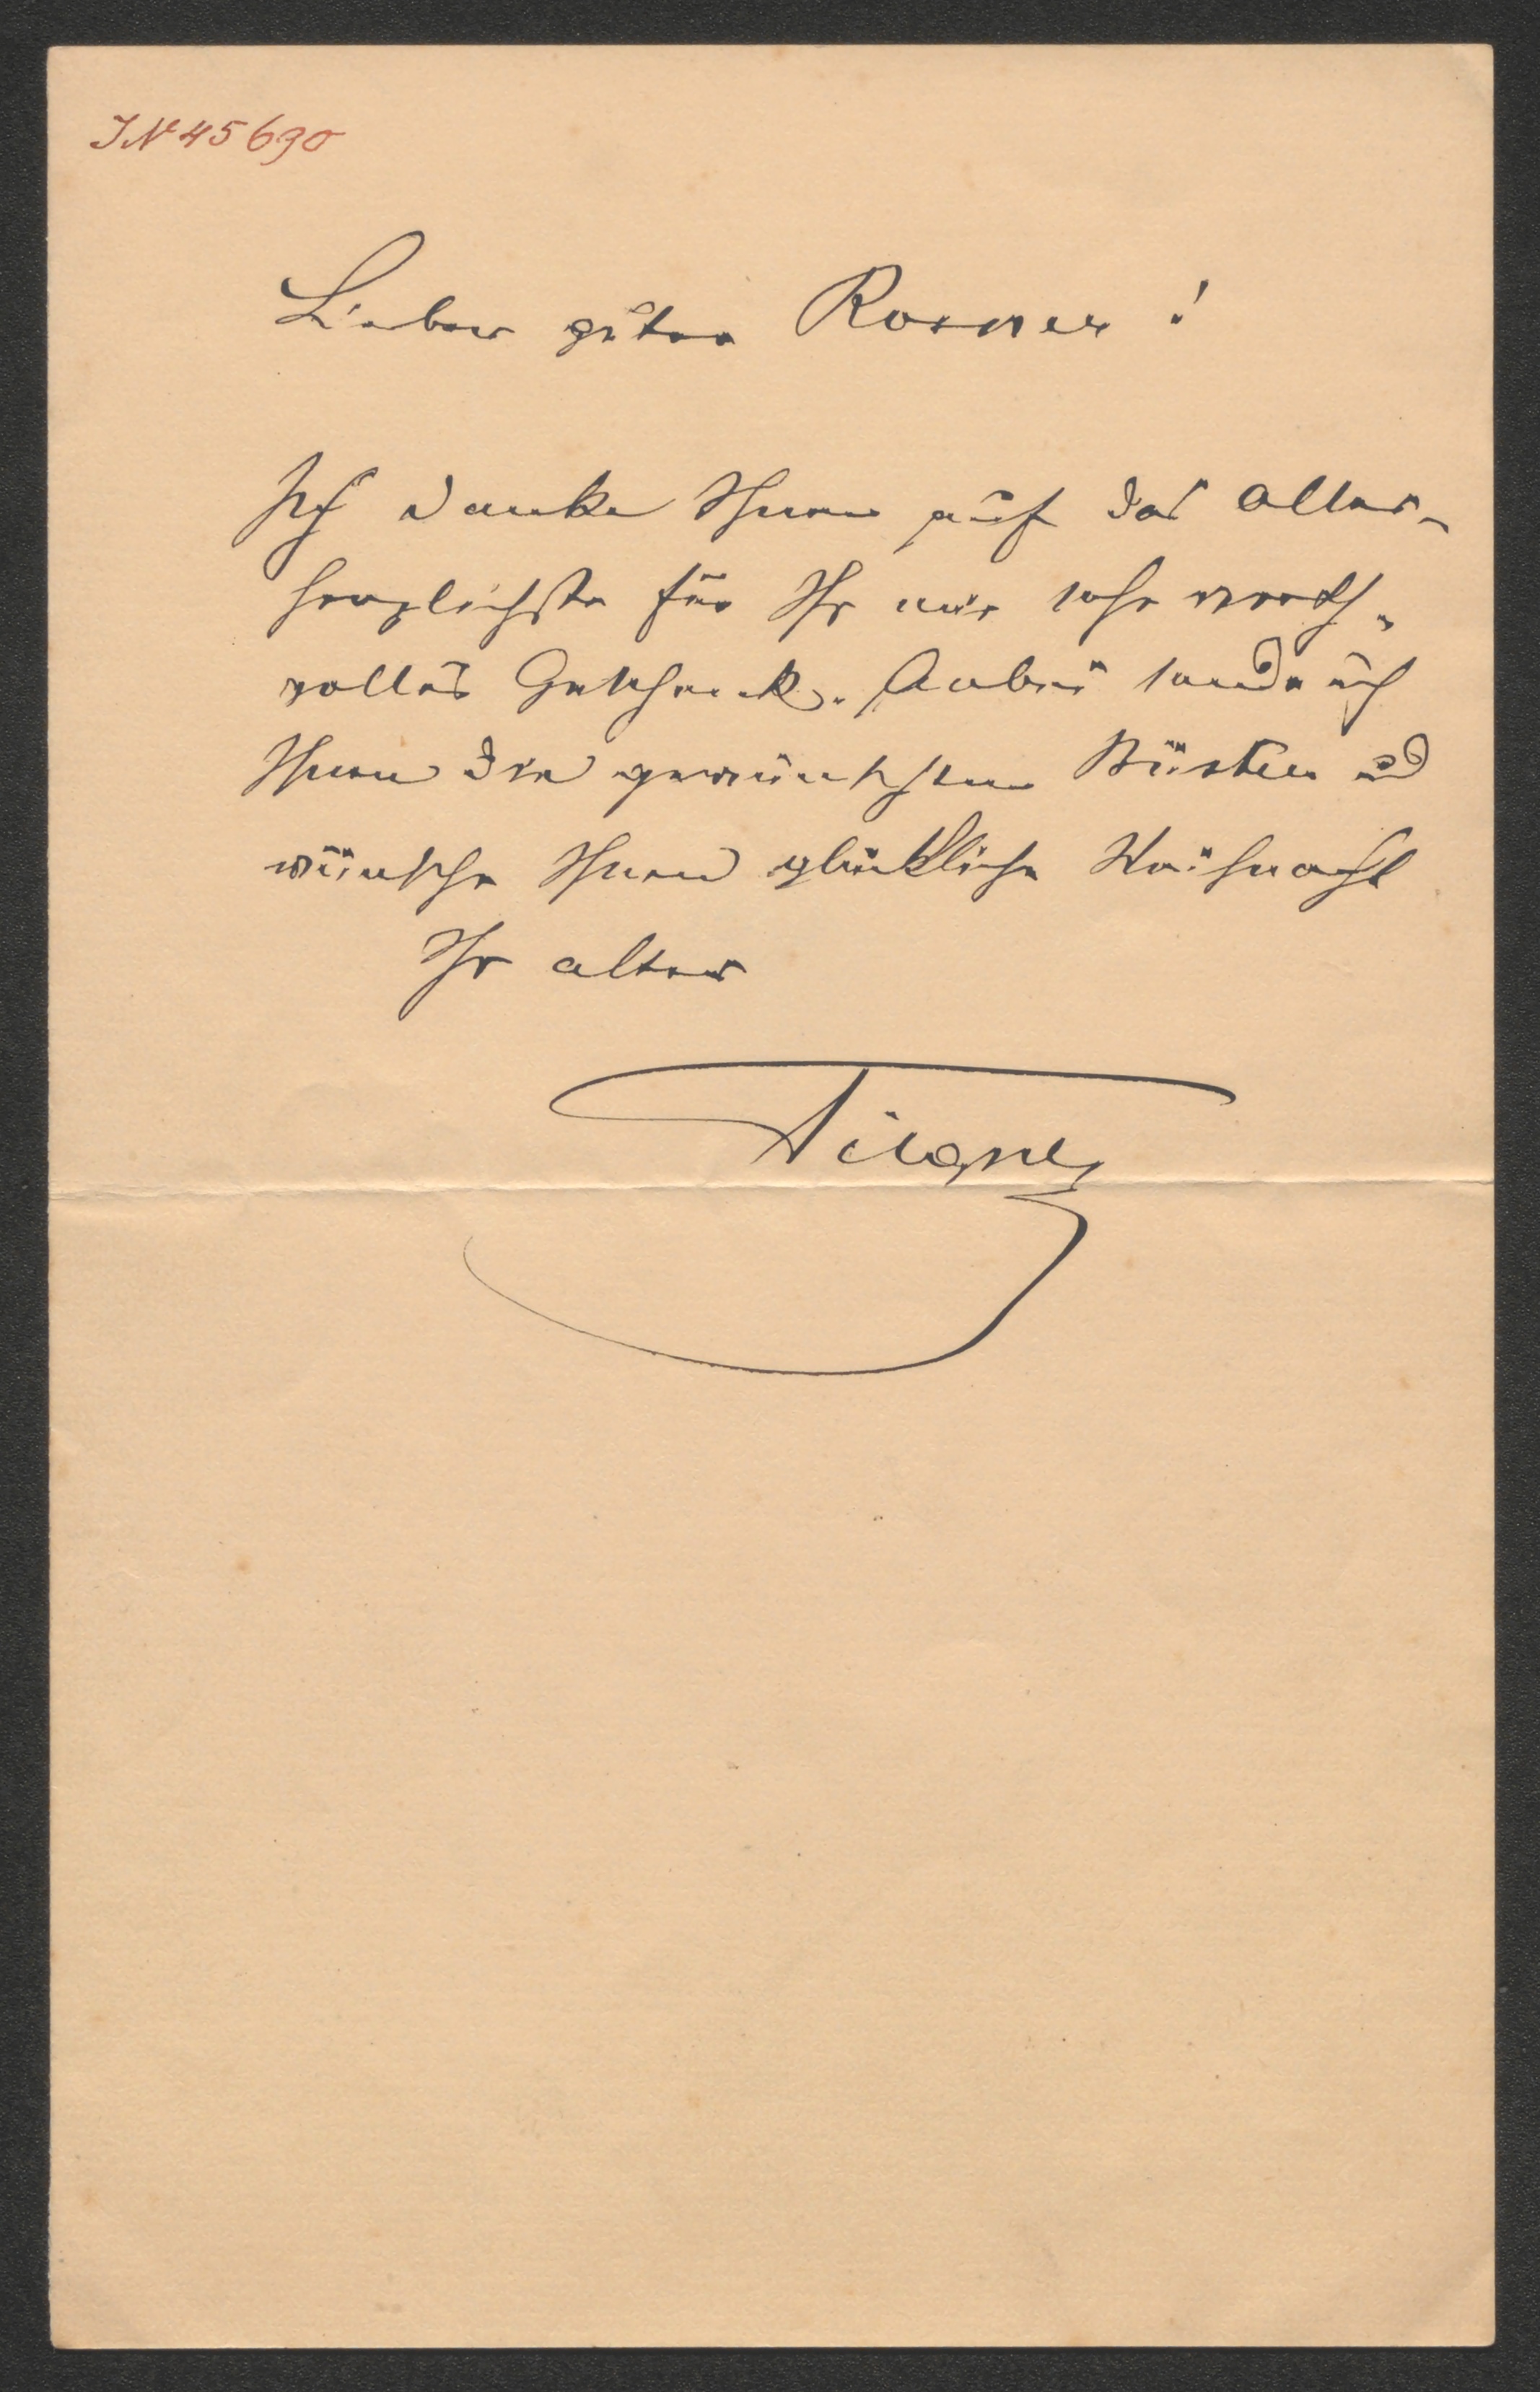 IN 45690
Lieber guter Rosner!
Ich danke Ihnen auf das Aller-
herzlichste für Ihr mir sehr werth-
volles Geschenk. Anbei sende ich
Ihnen die gewünschten Büsten und
wünsche Ihnen glückliche Weihnacht
Ihr alter
Tilgner